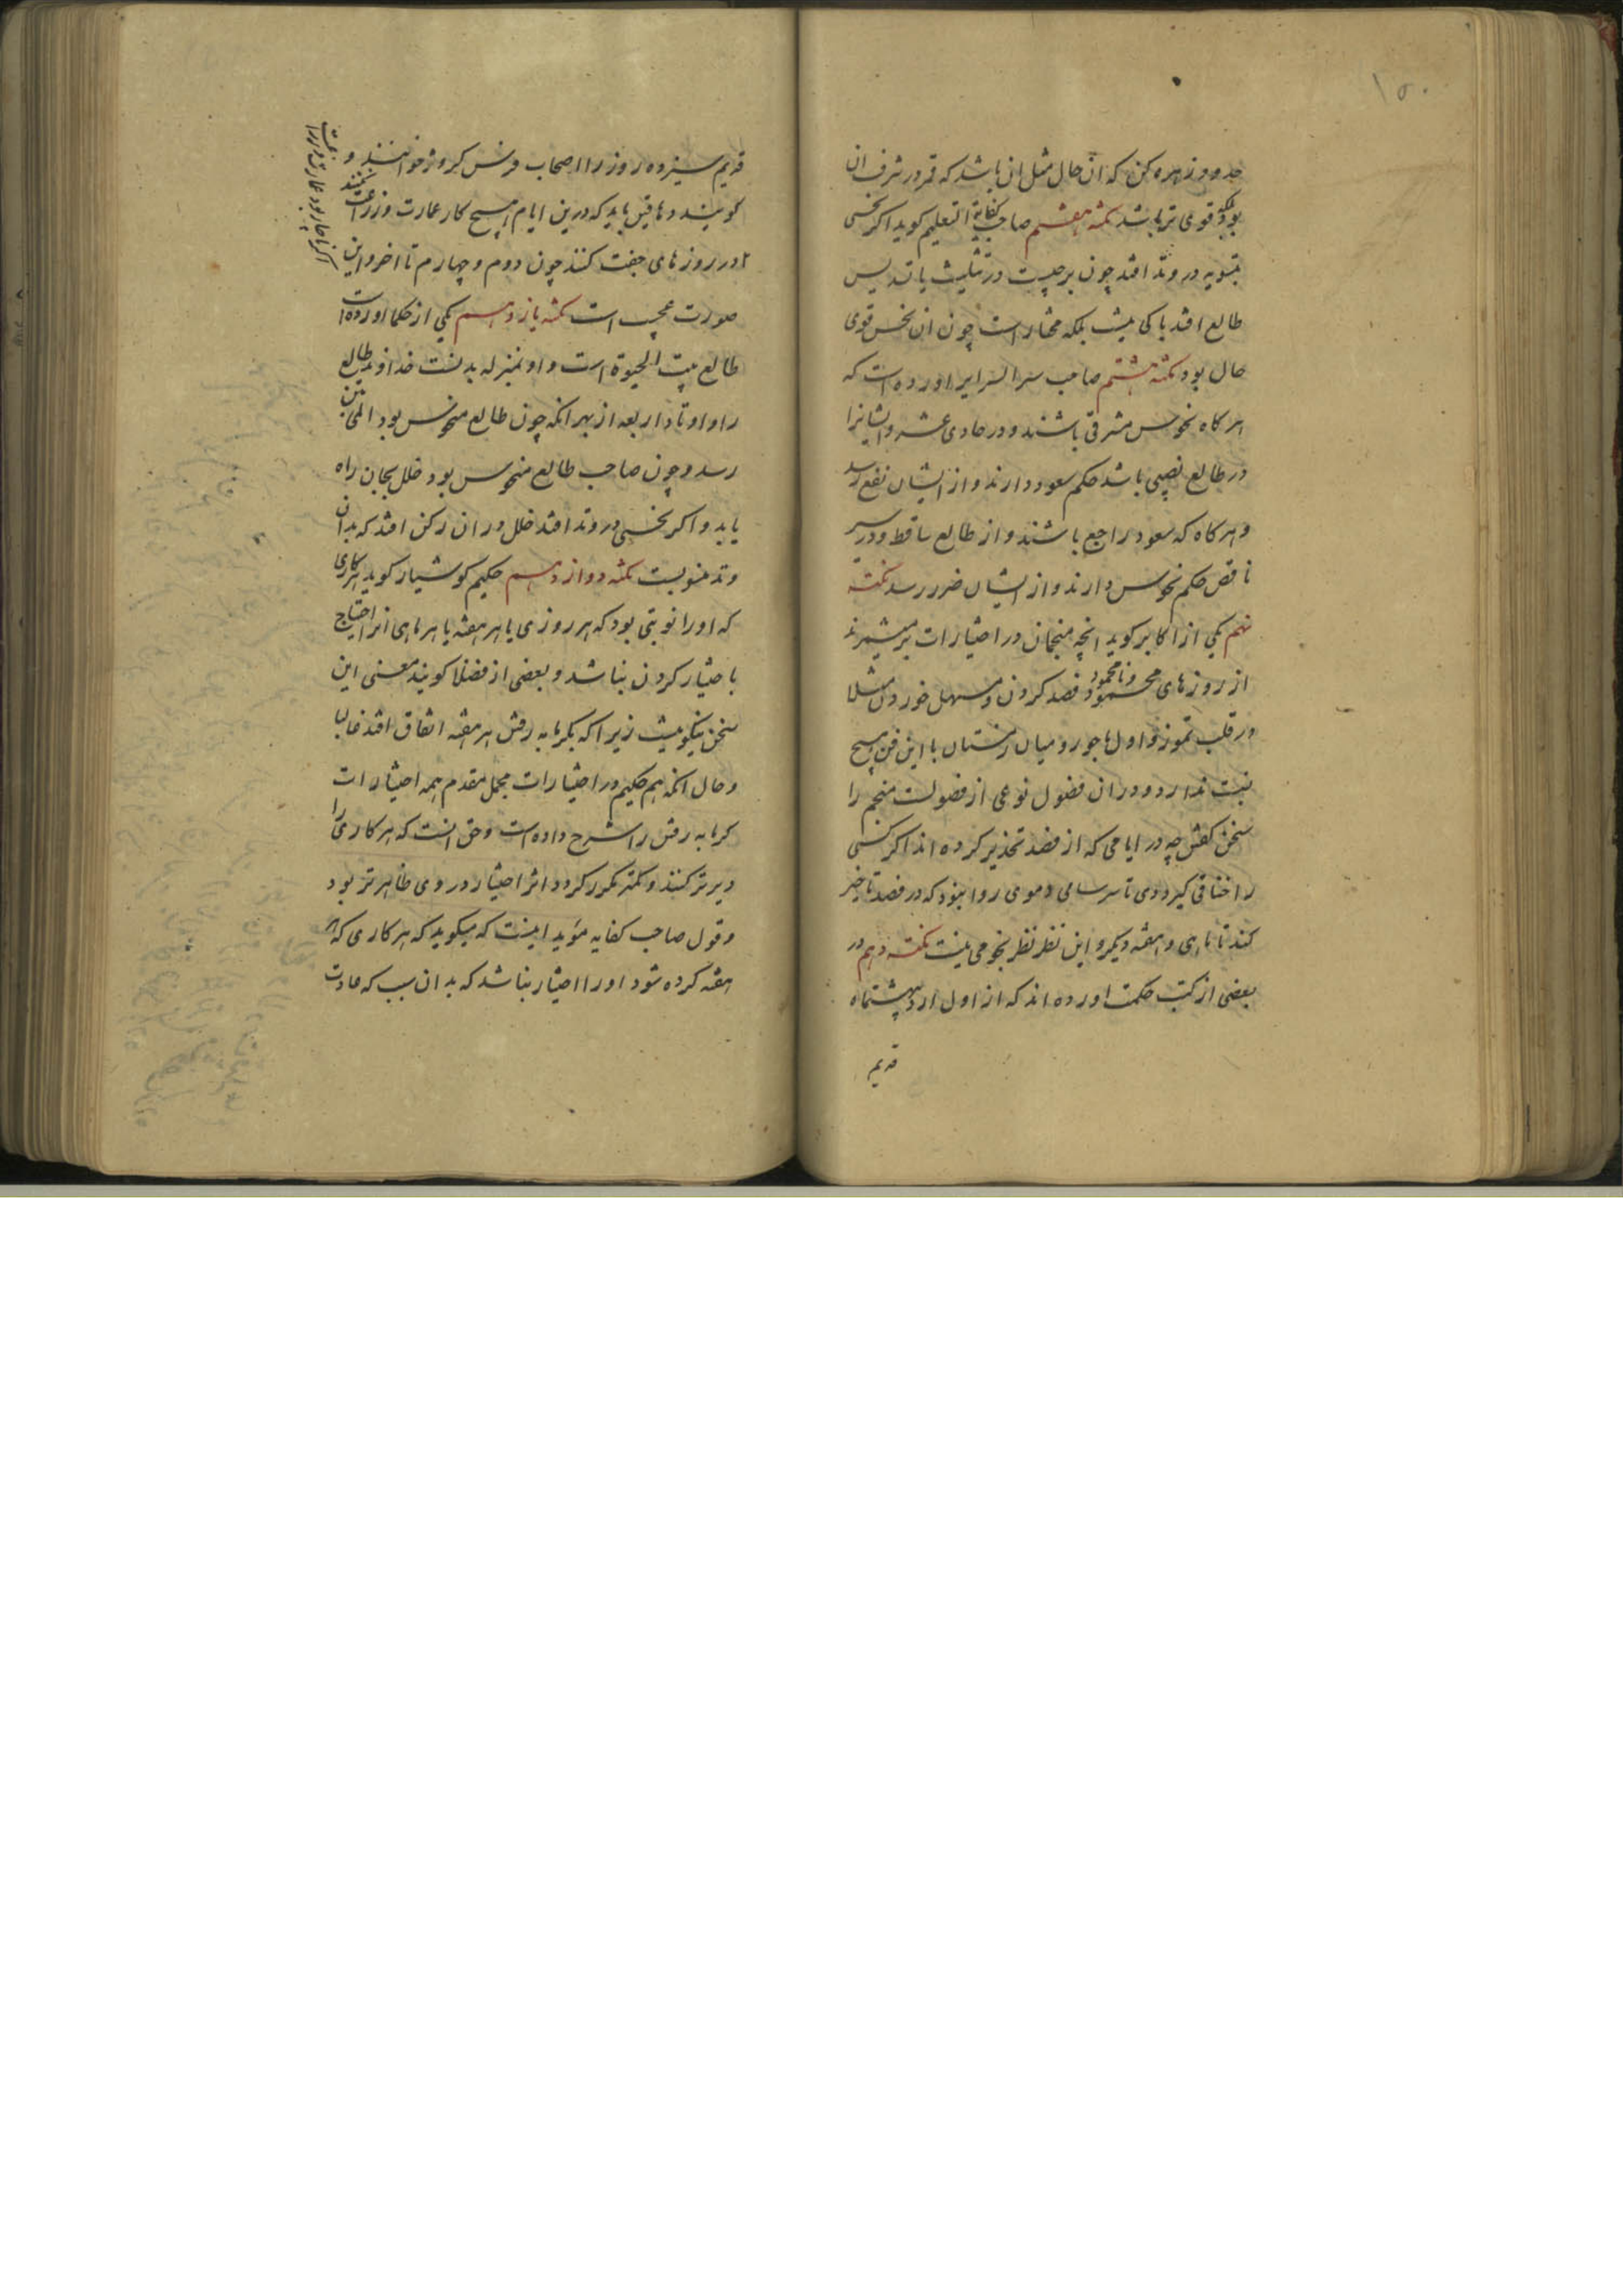 ۱۵۰
حد و وز زهره کن که آن حال مثل ان باشد که قمر در شرف ان
بود بلکه قوی تر باشد نکته هفتم صاحب کفایة التعلیم کوید اکر نحسی
بتسویه در وتد افتد چون برجیست در تثلیث یا تسدیس
طالع افتد باکی نیست بلکه مختار است چون ان نحس قوی
حال بود نکته هشتم صاحب سر السرایر اورده است که
هر کاه نحوس مشرقی باشند و در حادی عشر و ایشانرا
در طالع نصیبی باشد حکم سعود دارند و از ایشان نفع رسد
و هر کاه که سعود راجع باشند و از طالع ساقط و در سیر
ناقص حکم نحوس دارند و از ایشان ضرر رسد نکته
نهم یکی از اکابر کوید انچه منجمان در اختیارات بر میشمرند
از روزهای محمود و نامحمود فصد کردن و مسهل خوردن مثلا
در قلب تموز و اول باحور و میان زمستان با این فن هیچ
نسبت ندارد و دران فضول نوعی از فضولست منجم را
سخن کفتن چه در ایامی که از فصد تحذیر کرده اند اکر کسی
را خناقی کیرد دی تا سرسامی دموی روا نبود که در فصد تاخیر
کند تا ماهی و هفته دیکر و این نظر نظر نجومی نیست نکته دهم در
بعضی از کتب حکمت اورده اند که از اول اردیبهشتماه
قدیم
قدیم سیزده روز را اصحاب فرس کروژ خوانند و
کویند دهاقین باید که درین ایام هیچ کار عمارت و زراعت نکنند
در روزهای جفت کنند چون دوم و چهارم تا اخر و این
صورت عجب است نکته یازدهم یکی از حکما اورده است
طالع بیت الحیوة است و او بمنزله بدنست خداوند طالع
را و اوتاد اربعه از بهر انکه چون طالع منحوس بود الم بتن
رسد و چون صاحب طالع منحوس بود خلل بجان راه
یابد و اکر نحسی در وتد افتد خلل در ان رکن افتد که بدان
وتد منسوبست نکته دوازدهم حکیم کوشیار کوید هر کاری
که او را نوبتی بود که هر روزی یا هر هفته یا هر ماهی انرا احتیاج
باختیار کردن نباشد و بعضی از فضلا کویند معنی این
سخن نیکو نیست زیرا که بکرمابه رفتن هر هفته اتفاق افتد غالبا
و حال انکه هم حکیم در اختیارات مجمل مقدم همه اختیارات
کرمابه رفتن را شرح داده است و حق انست که هر کاری را
دیرتر کنند و کمتر مکرر کردد اثر اختیار در وی ظاهرتر بود
و قول صاحب کفایه مؤید اینست که میکوید که هر کاری که هر
هفته کرده شود او را اختیار نباشد که بدان سبب که عادت